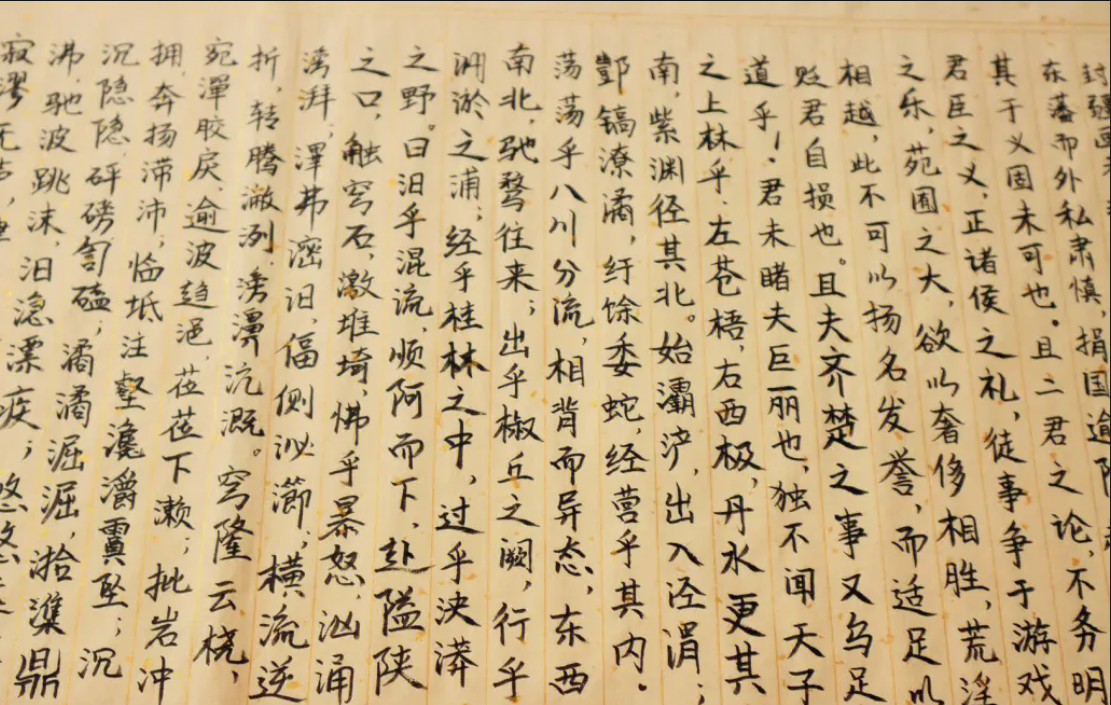 封疆画
东藩而外私肃慎，捐国逾限
其于义固未可也。且二君之论，不务明
君臣之义，正诸侯之礼，徒事争于游戏
之乐，苑囿之大，欲以奢侈相胜，荒淫
相越，此不可以扬名发誉，而适足以
贬君自损也。且夫齐楚之事又乌足
道乎！君未睹夫巨丽也，独不闻天子
之上林乎。左苍梧，右西极，丹水更其
南，紫渊径其北。始灞浐，出入泾渭；
酆镐潦潏，纡馀委蛇，经营乎其内。
荡荡乎八川分流，相背而异态，东西
南北，驰骛往来；出乎椒丘之阙，行乎
洲淤之浦；经乎桂林之中，过乎泱漭
之野。曰汩乎混流，顺阿而下，赴隘陕
之口，触穹石，激堆埼，怫乎暴怒，汹涌
澎湃；滭弗宓汩，偪侧泌瀄，横流逆
折，转腾潎洌，滂濞沆溉。穹隆云桡，
宛潬胶戾，逾波趋浥，莅莅下濑；批岩冲
拥，奔扬滞沛；临坻注壑，瀺灂霣坠；沉
沉隐隐，砰磅訇磕；潏潏淈淈，湁潗鼎
沸，驰波跳沫，汩㴔漂疾；悠悠
寂漻无声